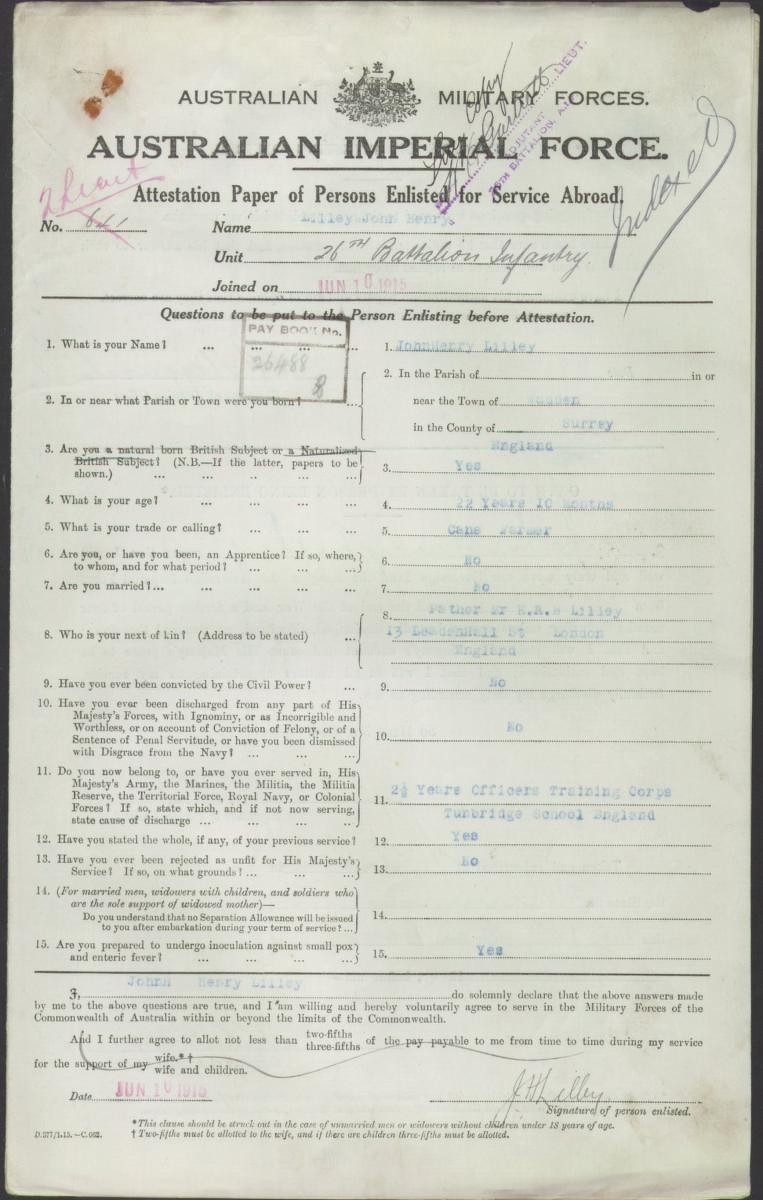 AUSTRALIAN MILITARY FORCES.
AUSTRALIAN IMPERIAL FORCE.
copy
LIEUT.
ADJUTANT
26TH BATTALION, A.I.F.
Indexed
2 Lieut
Attestation Paper of Persons Enlisted for Service Abroad.
No. 641 Name Lilley John Henry
Unit 26TH Battalion Infantry.
Joined on JUN 10 1915
Questions to be put to the Person Enlisting before Attestation.
PAY BOOK No.
26488
1. What is your Name? ... ... ... ... 1. JohnHenry Lilley
2. In the Parish of in or
2. In or near what Parish or Town were you born? ... near the Town of
in the County of Surrey
England
3. Are you a natural born British Subject or a Naturalized
British Subject? (N.B.—If the latter, papers to be
shown.) ... ... ... ... ... 3. Yes
4. What is your age? ... ... ... ... 4. 22 Years 10 Months
5. What is your trade or calling? ... ... ... 5. Cane Farmer
6. Are you, or have you been, an Apprentice? If so, where,
to whom, and for what period? ... ... ... 6. No
7. Are you married?... ... ... ... ... 7. No
8. Father Mr H.A.B Lilley
8. Who is your next of kin? (Address to be stated) ... 13 Leadenhall St London
England
9. Have you ever been convicted by the Civil Power? ... 9. No
10. Have you ever been discharged from any part of His
Majesty's Forces, with Ignominy, or as Incorrigible and
Worthless, or on account of Conviction of Felony, or of a
Sentence of Penal Servitude, or have you been dismissed
with Disgrace from the Navy? ... ... ... 10. No
11. Do you now belong to, or have you ever served in, His
Majesty's Army, the Marines, the Militia, the Militia
Reserve, the Territorial Force, Royal Navy, or Colonial
Forces? If so, state which, and if not now serving,
state cause of discharge ... ... ... ... 11. 2½ Years Officers Training Corps
Tunbridge School England
12. Have you stated the whole, if any, of your previous service? 12. Yes
13. Have you ever been rejected as unfit for His Majesty's
Service? If so, on what grounds? ... ... ... 13. No
14. (For married men, widowers with children, and soldiers who
are the sole support of widowed mother)—
Do you understand that no Separation Allowance will be issued
to you after embarkation during your term of service? ... 14.
15. Are you prepared to undergo inoculation against small pox
and enteric fever? ... ... ... ... 15. Yes
I, JohnH Henry Lilley do solemnly declare that the above answers made
by me to the above questions are true, and I am willing and hereby voluntarily agree to serve in the Military Forces of the
Commonwealth of Australia within or beyond the limits of the Commonwealth.
And I further agree to allot not less than two-fifths three-fifths of the pay payable to me from time to time during my service
for the support of my wife.*† wife and children.
Date JUN 10 1915 J H Lilley
Signature of person enlisted.
*This clause should be struck out in the case of unmarried men or widowers without children under 18 years of age.
D.577/1.15.—C.662. † Two-fifths must be allotted to the wife, and if there are children three-fifths must be allotted.